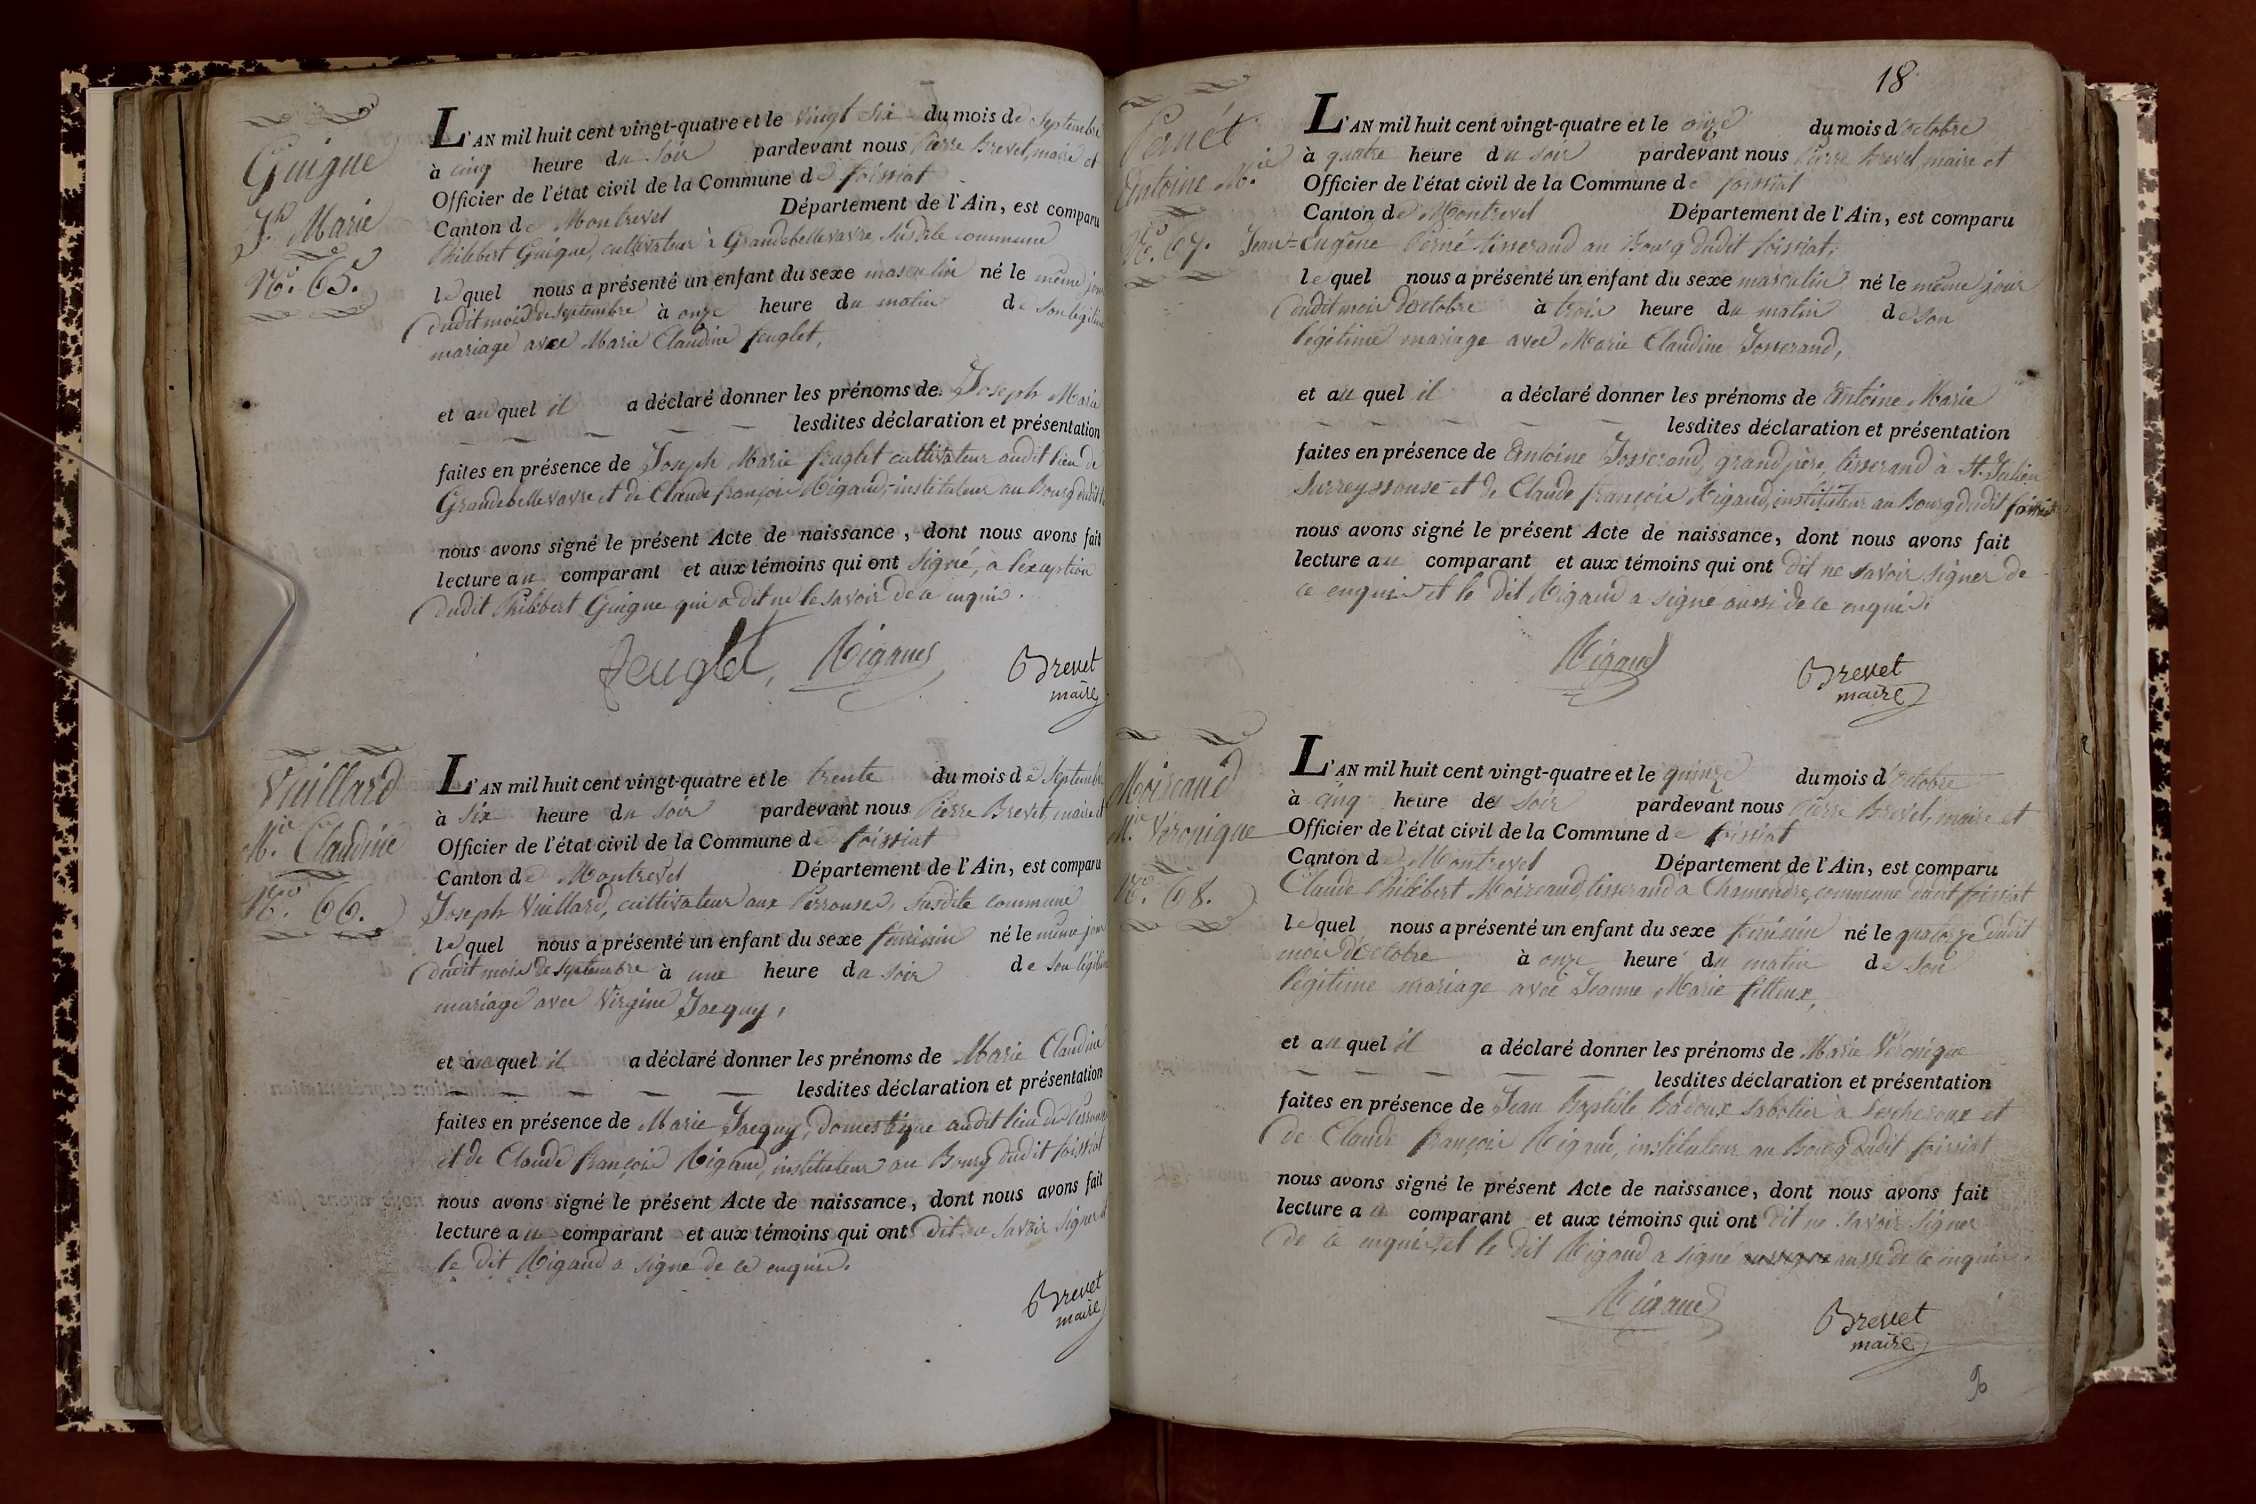 Guigue
Jh. Marie
No. 65.
L'AN mil huit cent vingt-quatre et le vingt six du mois de Septembre
à cinq heure du soir pardevant nous Pierre Brevet, maire et
Officier de l'état civil de la Commune de foissiat
Canton de Montrevel Département de l'Ain, est comparu
Philibert Guigue, cultivateur à Grandebellevavre, susdite commune
lequel nous a présenté un enfant du sexe masculin né le même jour
dudit mois de septembre à onze heure du matin de son légitime
mariage avec Marie Claudine feuglet,
et auquel il a déclaré donner les prénoms de Joseph Marie
lesdites déclaration et présentation
faites en présence de Joseph Marie feuglet cultivateur audit lieu de
Grandebellevavre et de Claude françois Rigaud, instituteur au Bourg dudit
nous avons signé le présent Acte de naissance, dont nous avons fait
lecture au comparant et aux témoins qui ont signé, à l'exception
dudit Philibert Guigue qui a dit ne le savoir de ce enquis.
feuglet, Rigaud Brevet
maire
Vuillard
Mie. Claudine
No. 66.
L'AN mil huit cent vingt-quatre et le trente du mois de Septembre
à six heure du soir pardevant nous Pierre Brevet, maire et
Officier de l'état civil de la Commune de foissiat
Canton de Montrevel Département de l'Ain, est comparu
Joseph Vuillard, cultivateur aux Perrouses, susdite commune
lequel nous a présenté un enfant du sexe féminin né le même jour
dudit mois de septembre à une heure du soir de son légitime
mariage avec Virgine Jacquy,
et auquel il a déclaré donner les prénoms de Marie Claudine
lesdites déclaration et présentation
faites en présence de Marie Jacquy, domestique audit lieu des
et de Claude françois Rigaud, instituteur au Bourg dudit foissiat
nous avons signé le présent Acte de naissance, dont nous avons fait
lecture au comparant et aux témoins qui ont dit ne savoir signer et
le dit Rigaud a signé de ce enquis.
Brevet
maire
18
Pernét
Antoine Mie
No. 67.
L'AN mil huit cent vingt-quatre et le onze du mois d'octobre
à quatre heure du soir pardevant nous Pierre Brevet, maire et
Officier de l'état civil de la Commune de foissiat
Canton de Montrevel Département de l'Ain, est comparu
Jean-Eugène Perné tisserand au Bourg dudit foissiat,
lequel nous a présenté un enfant du sexe masculin né le même jour
dudit mois d'octobre à trois heure du matin de son
légitime mariage avec Marie Claudine Josserand,
et auquel il a déclaré donner les prénoms de Antoine Marie
lesdites déclaration et présentation
faites en présence de Antoine Josserand, grand père, tisserand à St. Julien
surreyssouse et de Claude françois Rigaud, instituteur au Bourg dudit foissiat
nous avons signé le présent Acte de naissance, dont nous avons fait
lecture au comparant et aux témoins qui ont dit ne savoir signer de
ce enquis et le dit Rigaud a signe aussi de ce enquis.
Rigaud Brevet
maire
Moiraud
Mie. Véronique
No. 68.
L'AN mil huit cent vingt-quatre et le quinze du mois d'octobre
à cinq heure du soir pardevant nous Pierre Brevet, maire et
Officier de l'état civil de la Commune de foissiat
Canton de Montrevel Département de l'Ain, est comparu
Claude Philibert Moiraud, tisserand à Chamandre, commune dudit foissiat
lequel nous a présenté un enfant du sexe féminin né le quatorze dudit
mois d'octobre à onze heure du matin de son
légitime mariage avec Jeanne Marie filleux,
et auquel il a déclaré donner les prénoms de Marie Véronique
lesdites déclaration et présentation
faites en présence de Jean Baptiste Badoux sabotier à Lescheroux et
de Claude françois Rigaud, instituteur au Bourg dudit foissiat
nous avons signé le présent Acte de naissance, dont nous avons fait
lecture au comparant et aux témoins qui ont dit ne savoir signer
de ce enquis, et le dit Rigaud a signé aussi de ce enquis.
Rigaud Brevet
maire